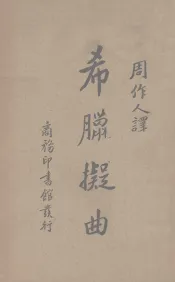 周作人譯
希臘擬曲
商務印書館發行